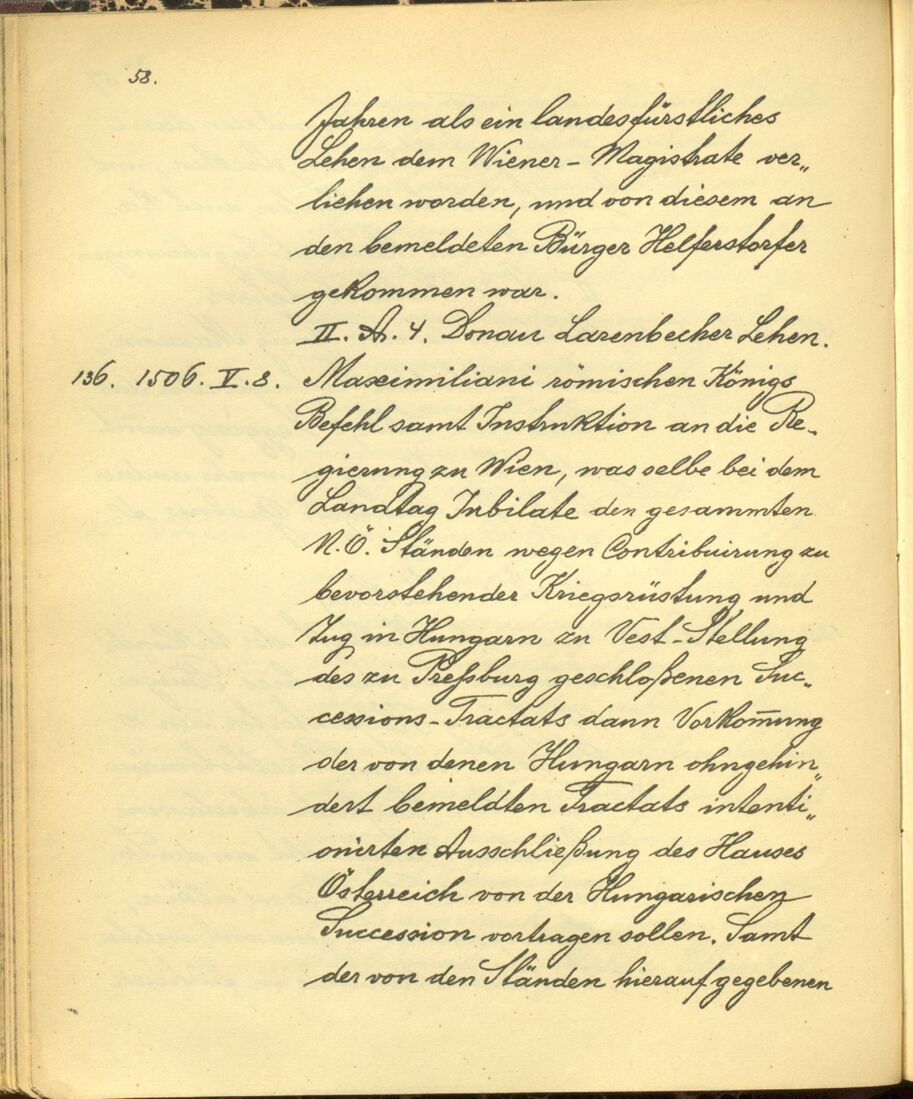 58.
Jahren als ein landesfürstliches
Lehen dem Wiener - Magistrate ver„
liehen worden, und von diesem an
den bemeldeten Bürger Helferstorfer
gekommen war.
II. A. 4. Donau Larenbecher Lehen.
136. 1506. V. 8. Maximiliani römischen Königs
Befehl samt Instruktion an die Re-
gierung zu Wien, was selbe bei dem
Landtag Jubilate den gesammten
N.Ö. Ständen wegen Contribuirung zu
bevorstehender Kriegsrüstung und
Zug in Hungarn zu Vest-Stellung
des zu Preßburg geschloßenen Suc-
cessions-Tractats dann Vorkom̅ung
der von denen Hungarn ohngehin„
dert bemeldten Tractats intenti„
onirten Ausschließung des Hauses
Österreich von der Hungarischen
Succession vortragen sollen. Samt
der von den Ständen hierauf gegebenen